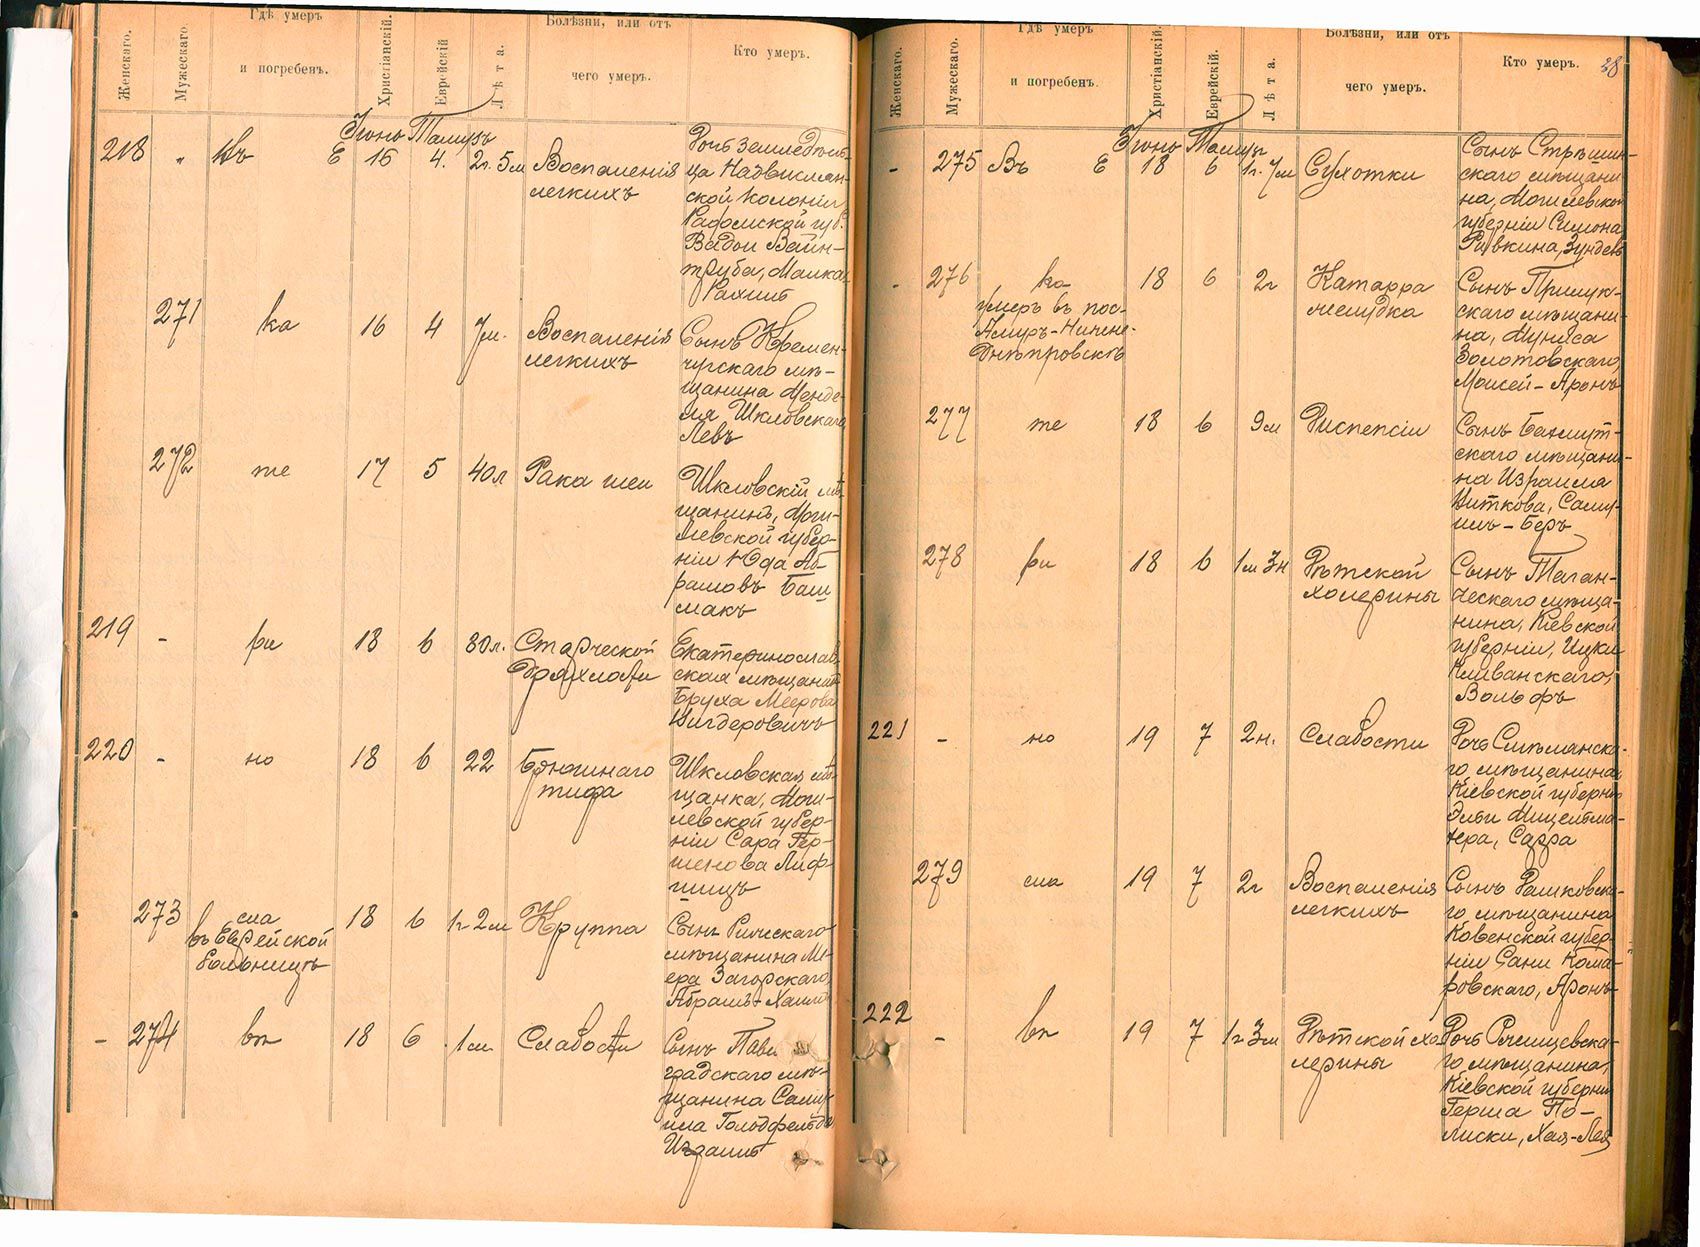 Женскаго.
Мужескаго
Гдѣ умеръ
и погребенъ.
Христіанскій.
Еврейскій
Лѣта.
Болѣзни, или отъ
чего умеръ.
Кто умеръ.
Іюнь Тамузъ
218 „ Въ Е 16 4. 2г. 5м Воспаленія
легкихъ
Дочь земледѣль-
ца Надвислян-
ской колоніи
Радомской губ.
Вейн-
труба, Малка
271 ка 16 4 7м. Воспаленія
легкихъ
Сынъ Кремен-
чугскаго мѣ-
щанина Менде-
ля Шкловскаго
Левъ
272 те 17 5 40л Рака шеи
Шкловскій мѣ-
щанинъ, Моги-
левской губер-
ніи Юда Аб-
рамовъ Баш
макъ
219 - ри 18 6 80л. Старческой
дряхлости
Екатеринослав
ская мѣщанка
Бруха Меерова
Вигдеровичъ
220 - но 18 6 22 Брюшнаго
тифа
Шкловская мѣ-
щанка, Моги-
левской губер-
ніи Сара Гер-
шенова Лиф-
шицъ
273 сла
въ Еврейской
больницѣ
18 6 1г 2м Круппа
Сынъ Рѣчскаго
мѣщанина Ме-
ера Загорскаго,
Абрамъ-Хаимъ
- 274 вп 18 6 1м Слабости
Сынъ Павло
градскаго мѣ-
щанина Саму-
ила Голодфельда
Женскаго.
Мужескаго.
Гдѣ умеръ
и погребенъ.
Христіанскій.
Еврейскій.
Лѣта.
Болѣзни, или отъ
чего умеръ.
Кто умеръ.
38
Іюнь Тамуз
- 275 Въ Е 18 6 1г. 7м Сухотки
Сынъ Стрѣшин-
скаго мѣщани-
на, Могилевской
губерніи Симона
Рывкина, Зундель
- 276 ка
умеръ въ пос.
Амуръ-Нижне-
Днѣпровскѣ
18 6 2г Катарра
желудка
Сынъ Прилук-
скаго мѣщани-
на, Муниса
Золотовскаго,
Моисей-Аронъ
277 те 18 6 9м Диспепсіи
Сынъ Бахмут-
скаго мѣщани-
на Израиля
Виткова, Саму-
илъ-Беръ
278 ри 18 6 1м 3н Дѣтской
холерины
Сынъ Таган-
ческаго мѣща-
нина, Кіевской
губерніи, Ицки
Кливанскаго,
Вольфъ
221 - но 19 7 2н. Слабости
Дочь Смѣлянска-
го мѣщанина
Кіевской губерніи
Мицельма-
хера, Сарра
279 сла 19 7 2г Воспаленія
легкихъ
Сынъ Рашковска-
го мѣщанина
Ковенской губер-
ніи Сани Кома-
ровскаго, Аронъ
222 - вп 19 7 1г 3м Дѣтской хо-
лерины
Дочь Ржищевска-
го мѣщанина,
Кіевской губерніи
Герша По-
лиски, Хая-Лея